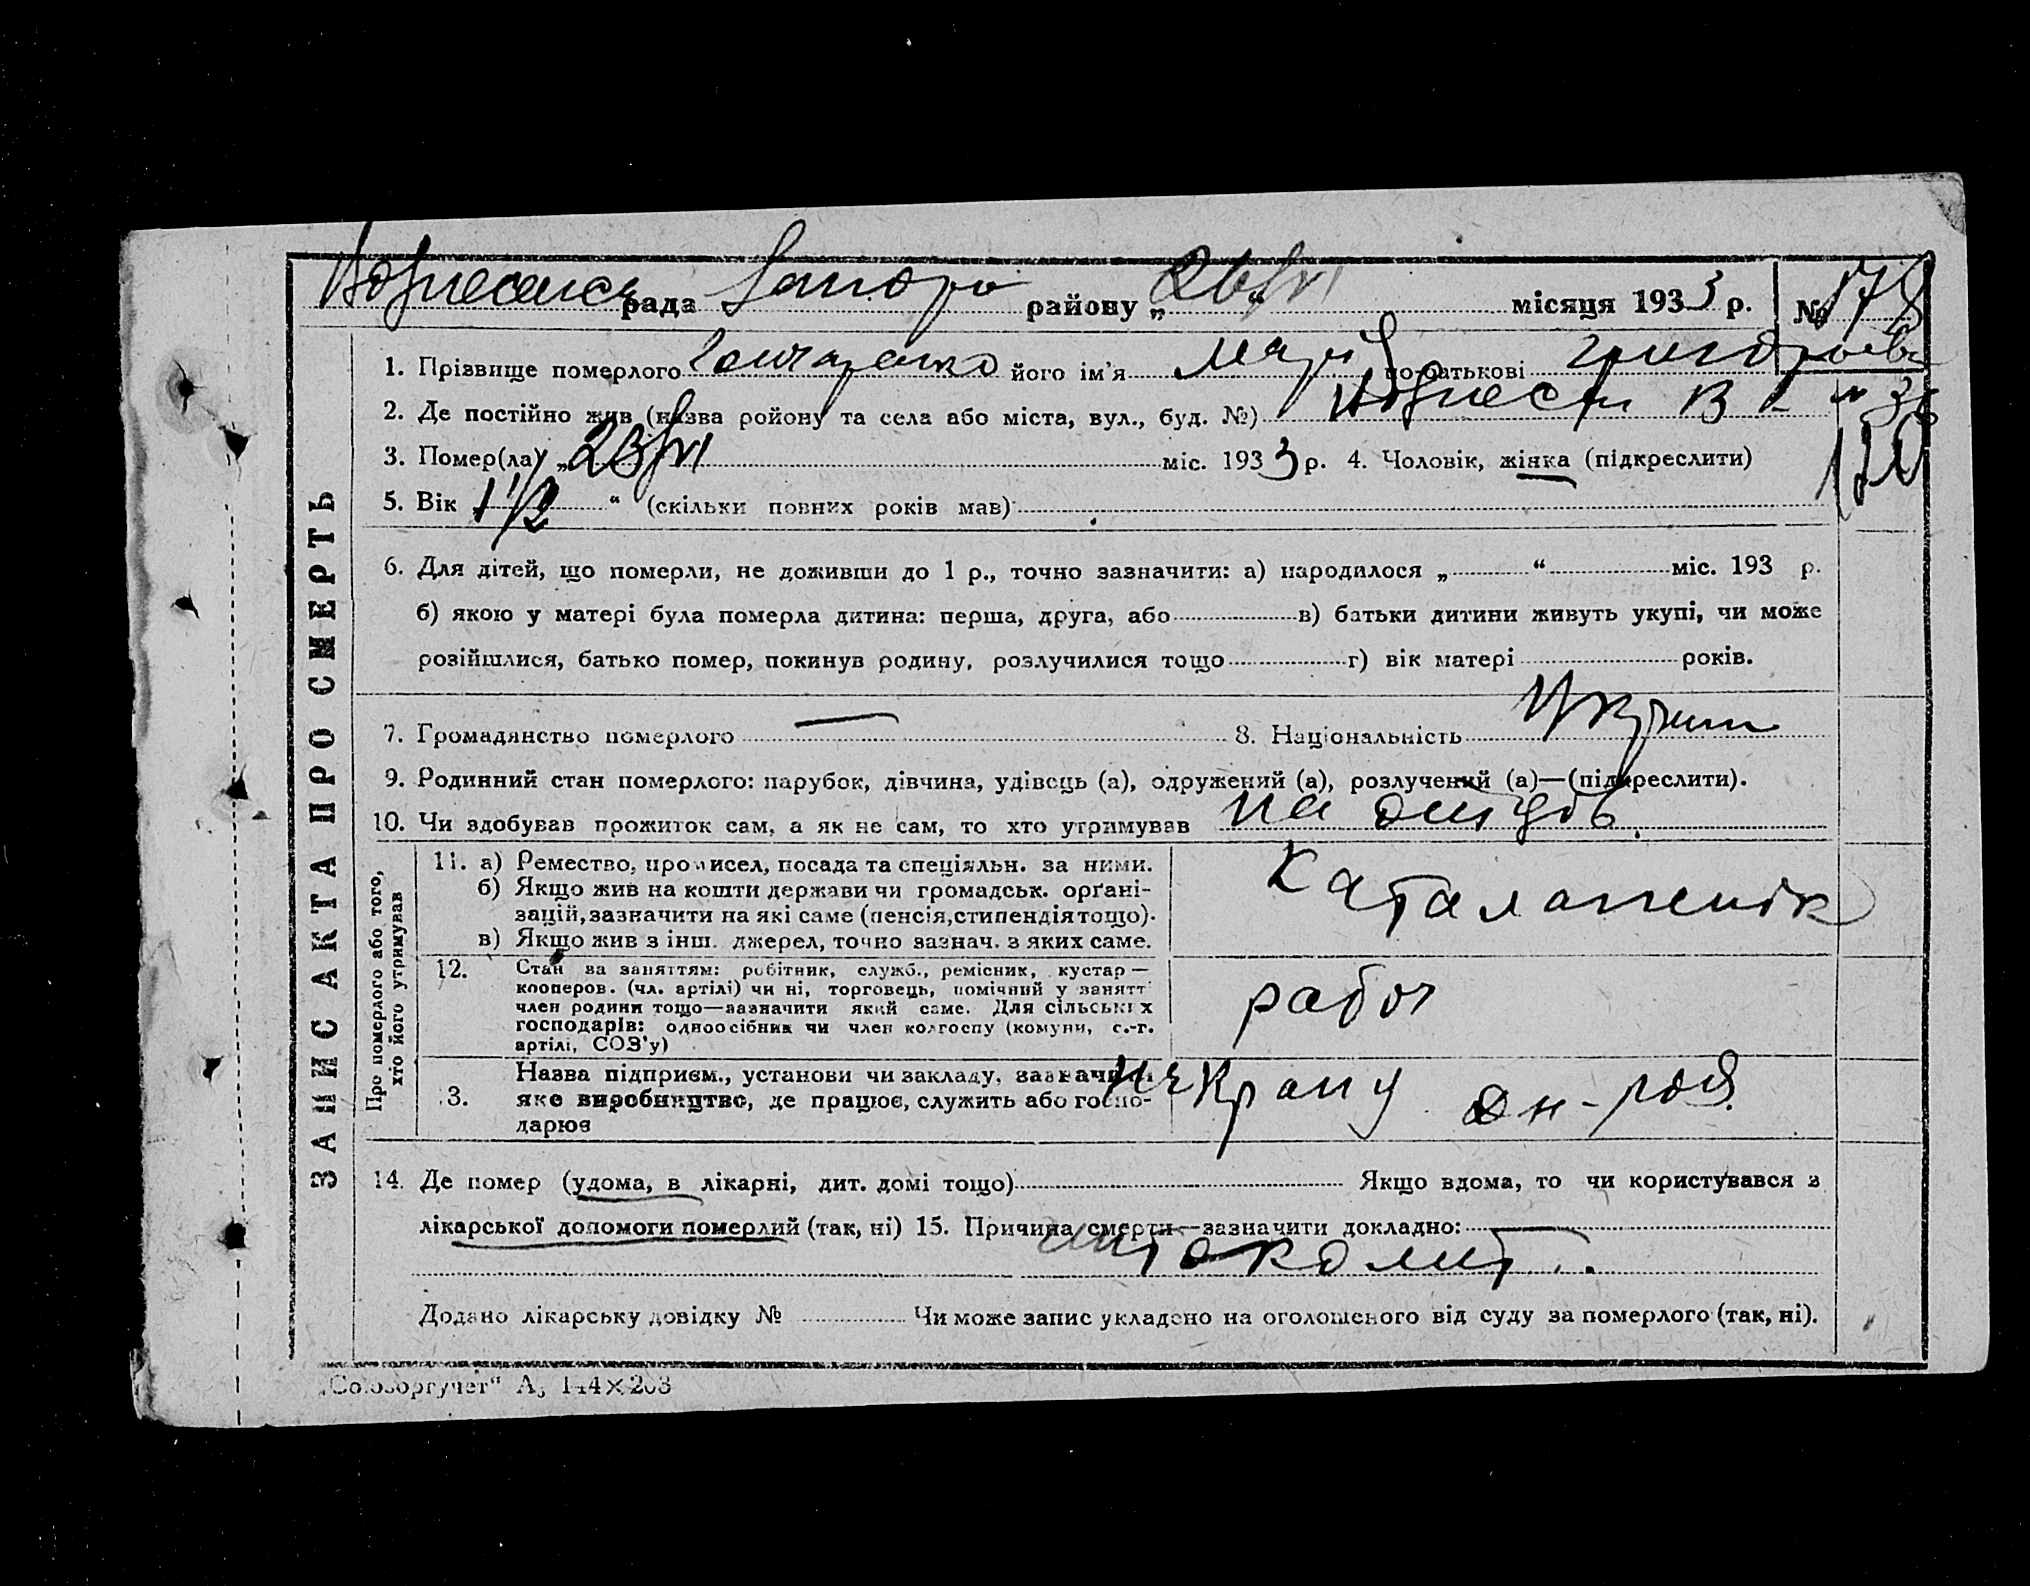 Вознесенск рада Запоро району „26/VI“ місяця 1933 р. № 178
1. Прізвище померлого Гончаренко його ім'я Марія по батькові Григорьев
2. Де постійно жив (назва ройону та села або міста, вул., буд. №) Вознесен
3. Помер(ла) „23/VI міс. 1933 р. 4. Чоловік, жінка (підкреслити)
5. Вік 1 1/2 “ (скільки повних років мав)
6. Для дітей, що померли, не доживши до 1 р., точно зазначити: а) народилося „ “ міс. 193 р.
б) якою у матері була померла дитина: перша, друга, або в) батьки дитини живуть укупі, чи може
розійшлися, батько помер, покинув родину, розлучилися тощо г) вік матері років.
7. Громадянство померлого — 8. Національність Украин
9. Родинний стан померлого: парубок, дівчина, удівець (а), одружений (а), розлучений (а)—(підкреслити).
10. Чи здобував прожиток сам, а як не сам, то хто утримував
ЗАПИС АКТА ПРО СМЕРТЬ
Про померлого або того, хто його утримував
11. а) Ремество, промисел, посада та спеціяльн. за ними.
б) Якщо жив на кошти держави чи громадськ. орґані-
зацій, зазначити на які саме (пенсія, стипендія тощо).
в) Якщо жив з інш. джерел, точно зазнач. з яких саме.
12. Стан за заняттям: робітник, служб., ремісник, кустар —
кооперов. (чл. артілі) чи ні, торговець, помічний у занятт
член родини тощо—зазначити який саме. Для сільських
господарів: одноосібник чи член колгоспу (комуни, с.-г.
артілі, СОЗ'у)
рабоч
13. Назва підприєм., установи чи закладу, зазначити
яке виробництво, де працює, служить або госпо-
дарює
на крану
14. Де помер (удома, в лікарні, дит. домі тощо) Якщо вдома, то чи користувався з
лікарської допомоги померлий (так, ні) 15. Причина смерти—зазначити докладно:
Додано лікарську довідку № Чи може запис укладено на оголошеного від суду за померлого (так, ні).
„Союзоргучет“ А5 144×203